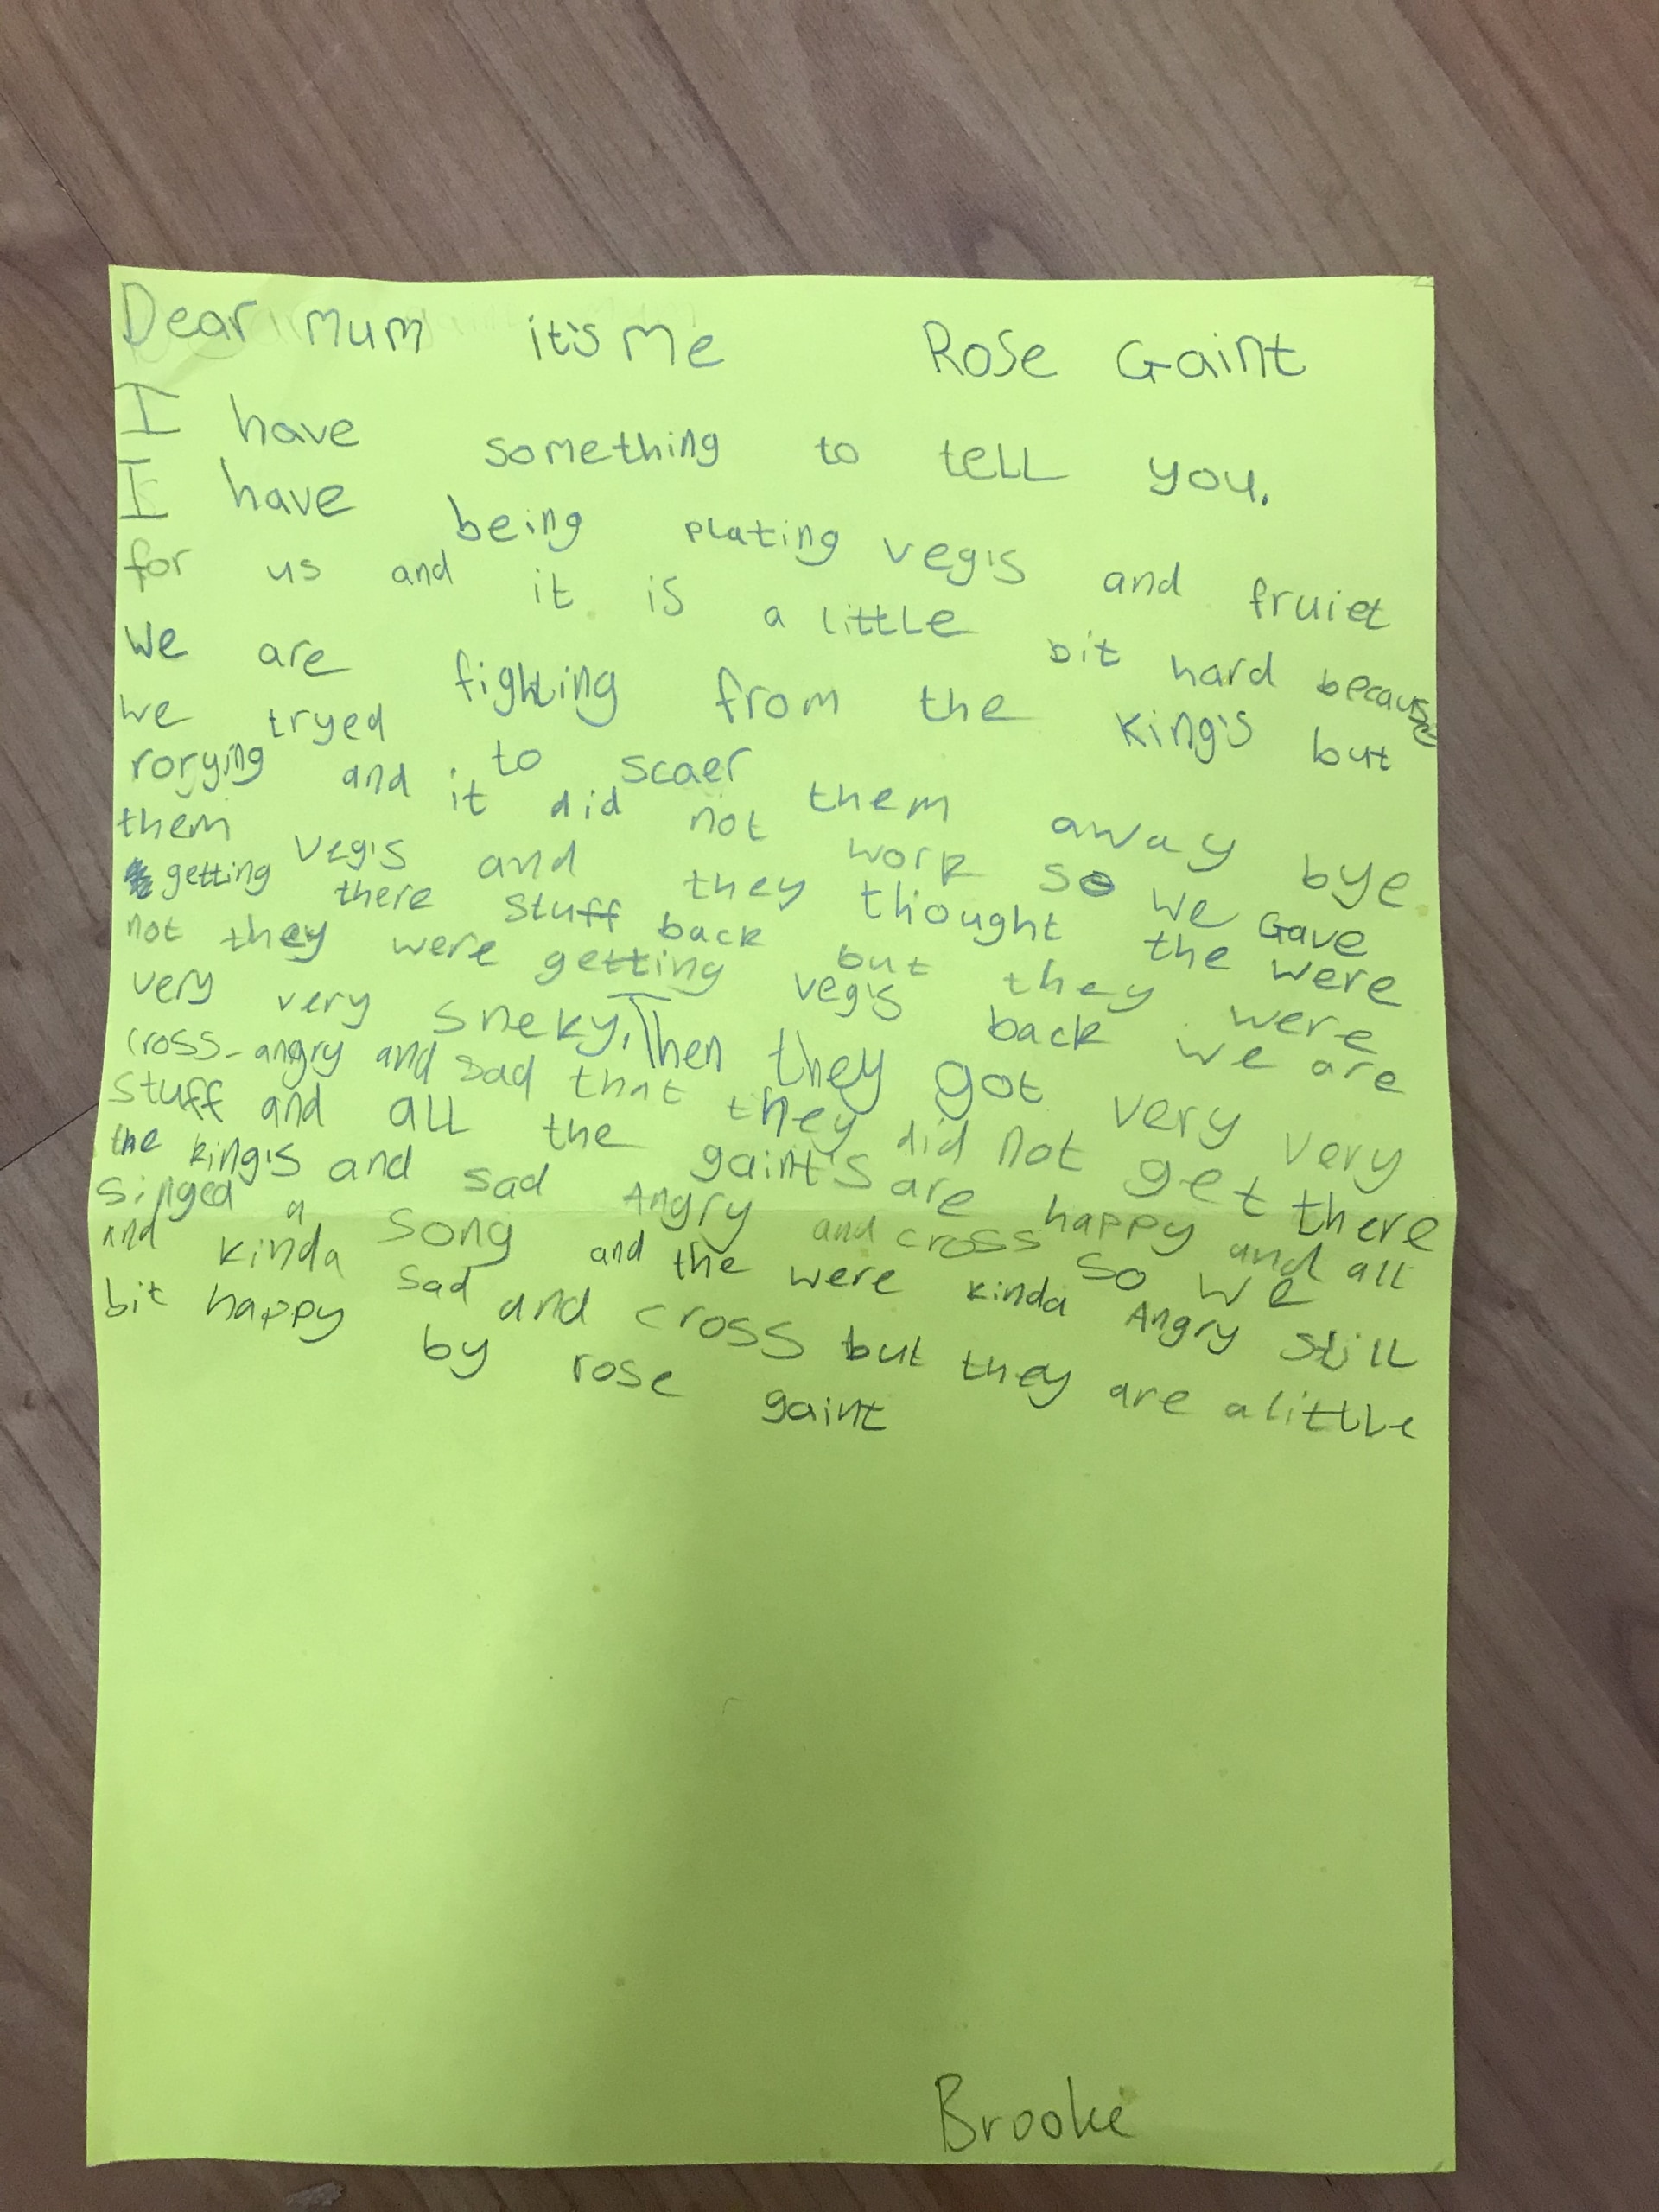 Dear Mum it's Me Rose Gaint
I have something to tell you.
I have being plating vegi's and fruiet
for us and it is a little bit hard because
We are fighting from the King's but
we tryed to scaer them away bye
rorying and it did not work so we Gave
them vegi's and they thought the were
getting there stuff back but they were
not they were getting vegi's back we are
very very sneky. Then they got very very
cross-angry and sad that they did not get there
stuff and all the gaint's are happy and all
the king's and sad Angry and cross so we
singed a song and the were kinda Angry still
and kinda sad and cross but they are a little
bit happy by rose gaint
Brooke